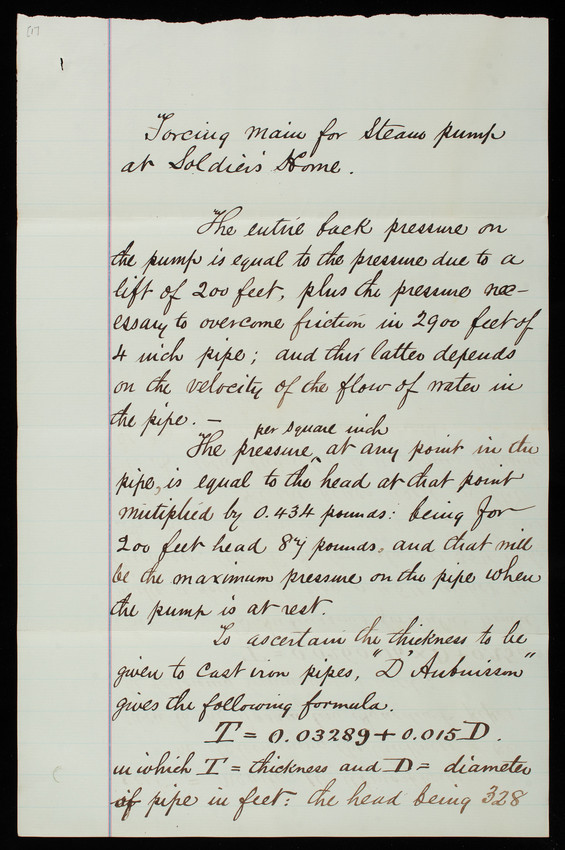 (1)
1
Forcing main for Steam pump
at Soldier's Home.
The entire back pressure on
the pump is equal to the pressure due to a
lift of 200 feet, plus the pressure nec-
essary to overcome friction in 2900 feet of
4 inch pipe; and this latter depends
on the velocity of the flow of water in
the pipe. —
per square inch
The pressure ‸ at any point in the
pipe, is equal to the head at that point
multiplied by 0.434 pounds: being for
200 feet head 87 pounds, and that will
be the maximum pressure on the pipe when
the pump is at rest.
To ascertain the thickness to be
given to cast iron pipes, "D'Aubuisson"
gives the following formula.
T = 0.03289 + 0.015 D.
in which T = thickness and D = diameter
of pipe in feet: the head being 328